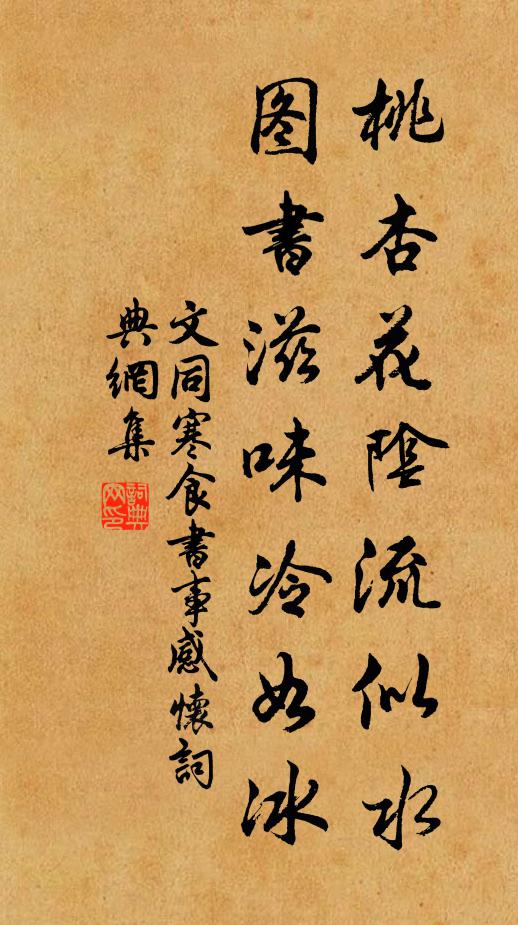 桃杏花陰流似水
图書滋味冷如冰
文同寒食書事感懷詞
典網集
詞典网印